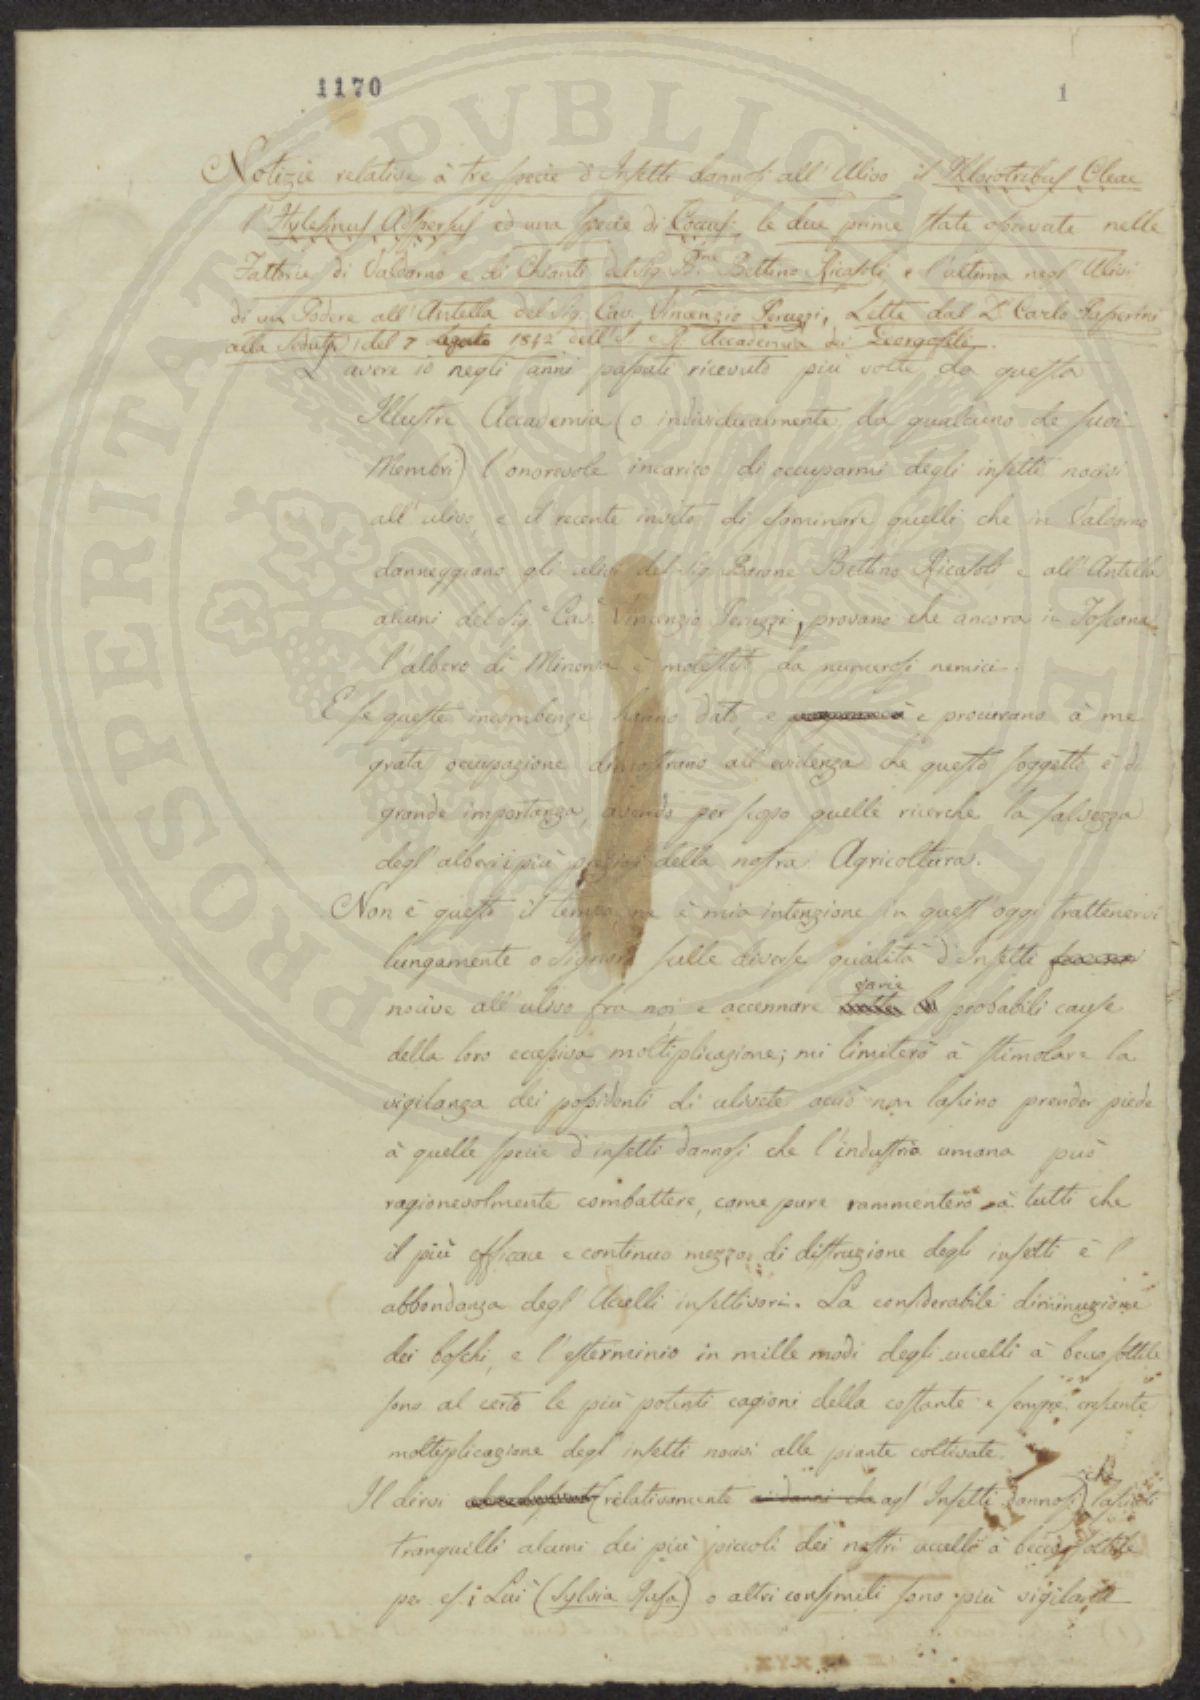 1170
1
Notizie relative à tre specie d'Insetti dannosi all'Ulivo il Phloiotribus Oleae
l'Hylesinus Adspersus ed una specie di Coccus; le due prime state osservate nelle
Fattorie di Valdarno e di Chianti del Sig. Bne Bettino Ricasoli e l'ultima negl'Ulivi
di un Podere all'Antella del Sig. Cav. Vincenzio Peruzzi, Lette dal Dr Carlo Passerini
alla Seduta del 7 Agosto 1842 dell'I. e R. Accademia dei Georgofili.
L'avere io negli anni passati ricevuto più volte da questa
Illustre Accademia (o individualmente da qualcuno de suoi
Membri) l'onorevole incarico di occuparmi degli insetti nocivi
all'ulivo, e il recente invito di esaminare quelli che in Valdarno
danneggiano gli ulivi del Sig. Barone Bettino Ricasoli e all'Antella
alcuni del Sig. Cav. Vincenzio Peruzzi, provano che ancora in Toscana
l'albero di Minerva è molestato da numerosi nemici.
E se queste incombenze hanno dato, e e procurano à me
grata occupazione dimostrano all'evidenza che questo soggetto è di
grande importanza, avendo per scopo quelle ricerche la salvezza
degl'alberi i più preziosi della nostra Agricoltura.
Non è questo il tempo ne è mia intenzione in quest'oggi trattenervi
lungamente o Signori sulle diverse qualità d'Insetti
varie
nocive all'ulivo fra noi e accennare le probabili cause
della loro eccessiva moltiplicazione; mi limiterò à stimolare la
vigilanza dei possidenti di ulivete acciò non lascino prender piede
à quelle specie d'insetti dannosi che l'industria umana può
ragionevolmente combattere, come pure rammenterò à tutti che
il più efficace e continuo mezzo di distruzione degli insetti è l'
abbondanza degl'Uccelli insettivori. La considerabile diminuzione
dei boschi, e l'esterminio in mille modi degli uccelli à becco sottile
sono al certo le più potenti cagioni della costante e sempre crescente
moltiplicazione degl'insetti nocivi alle piante coltivate.
che
Il dirvi (relativamente agl'Insetti dannosi) lasciati
tranquilli alcuni dei più piccoli dei nostri uccelli à becco sottile
per es. i Luì (Sylvia Rufa) o altri consimili sono più vigilanti
PROSPERITATI PUBLICAE AUGENDAE